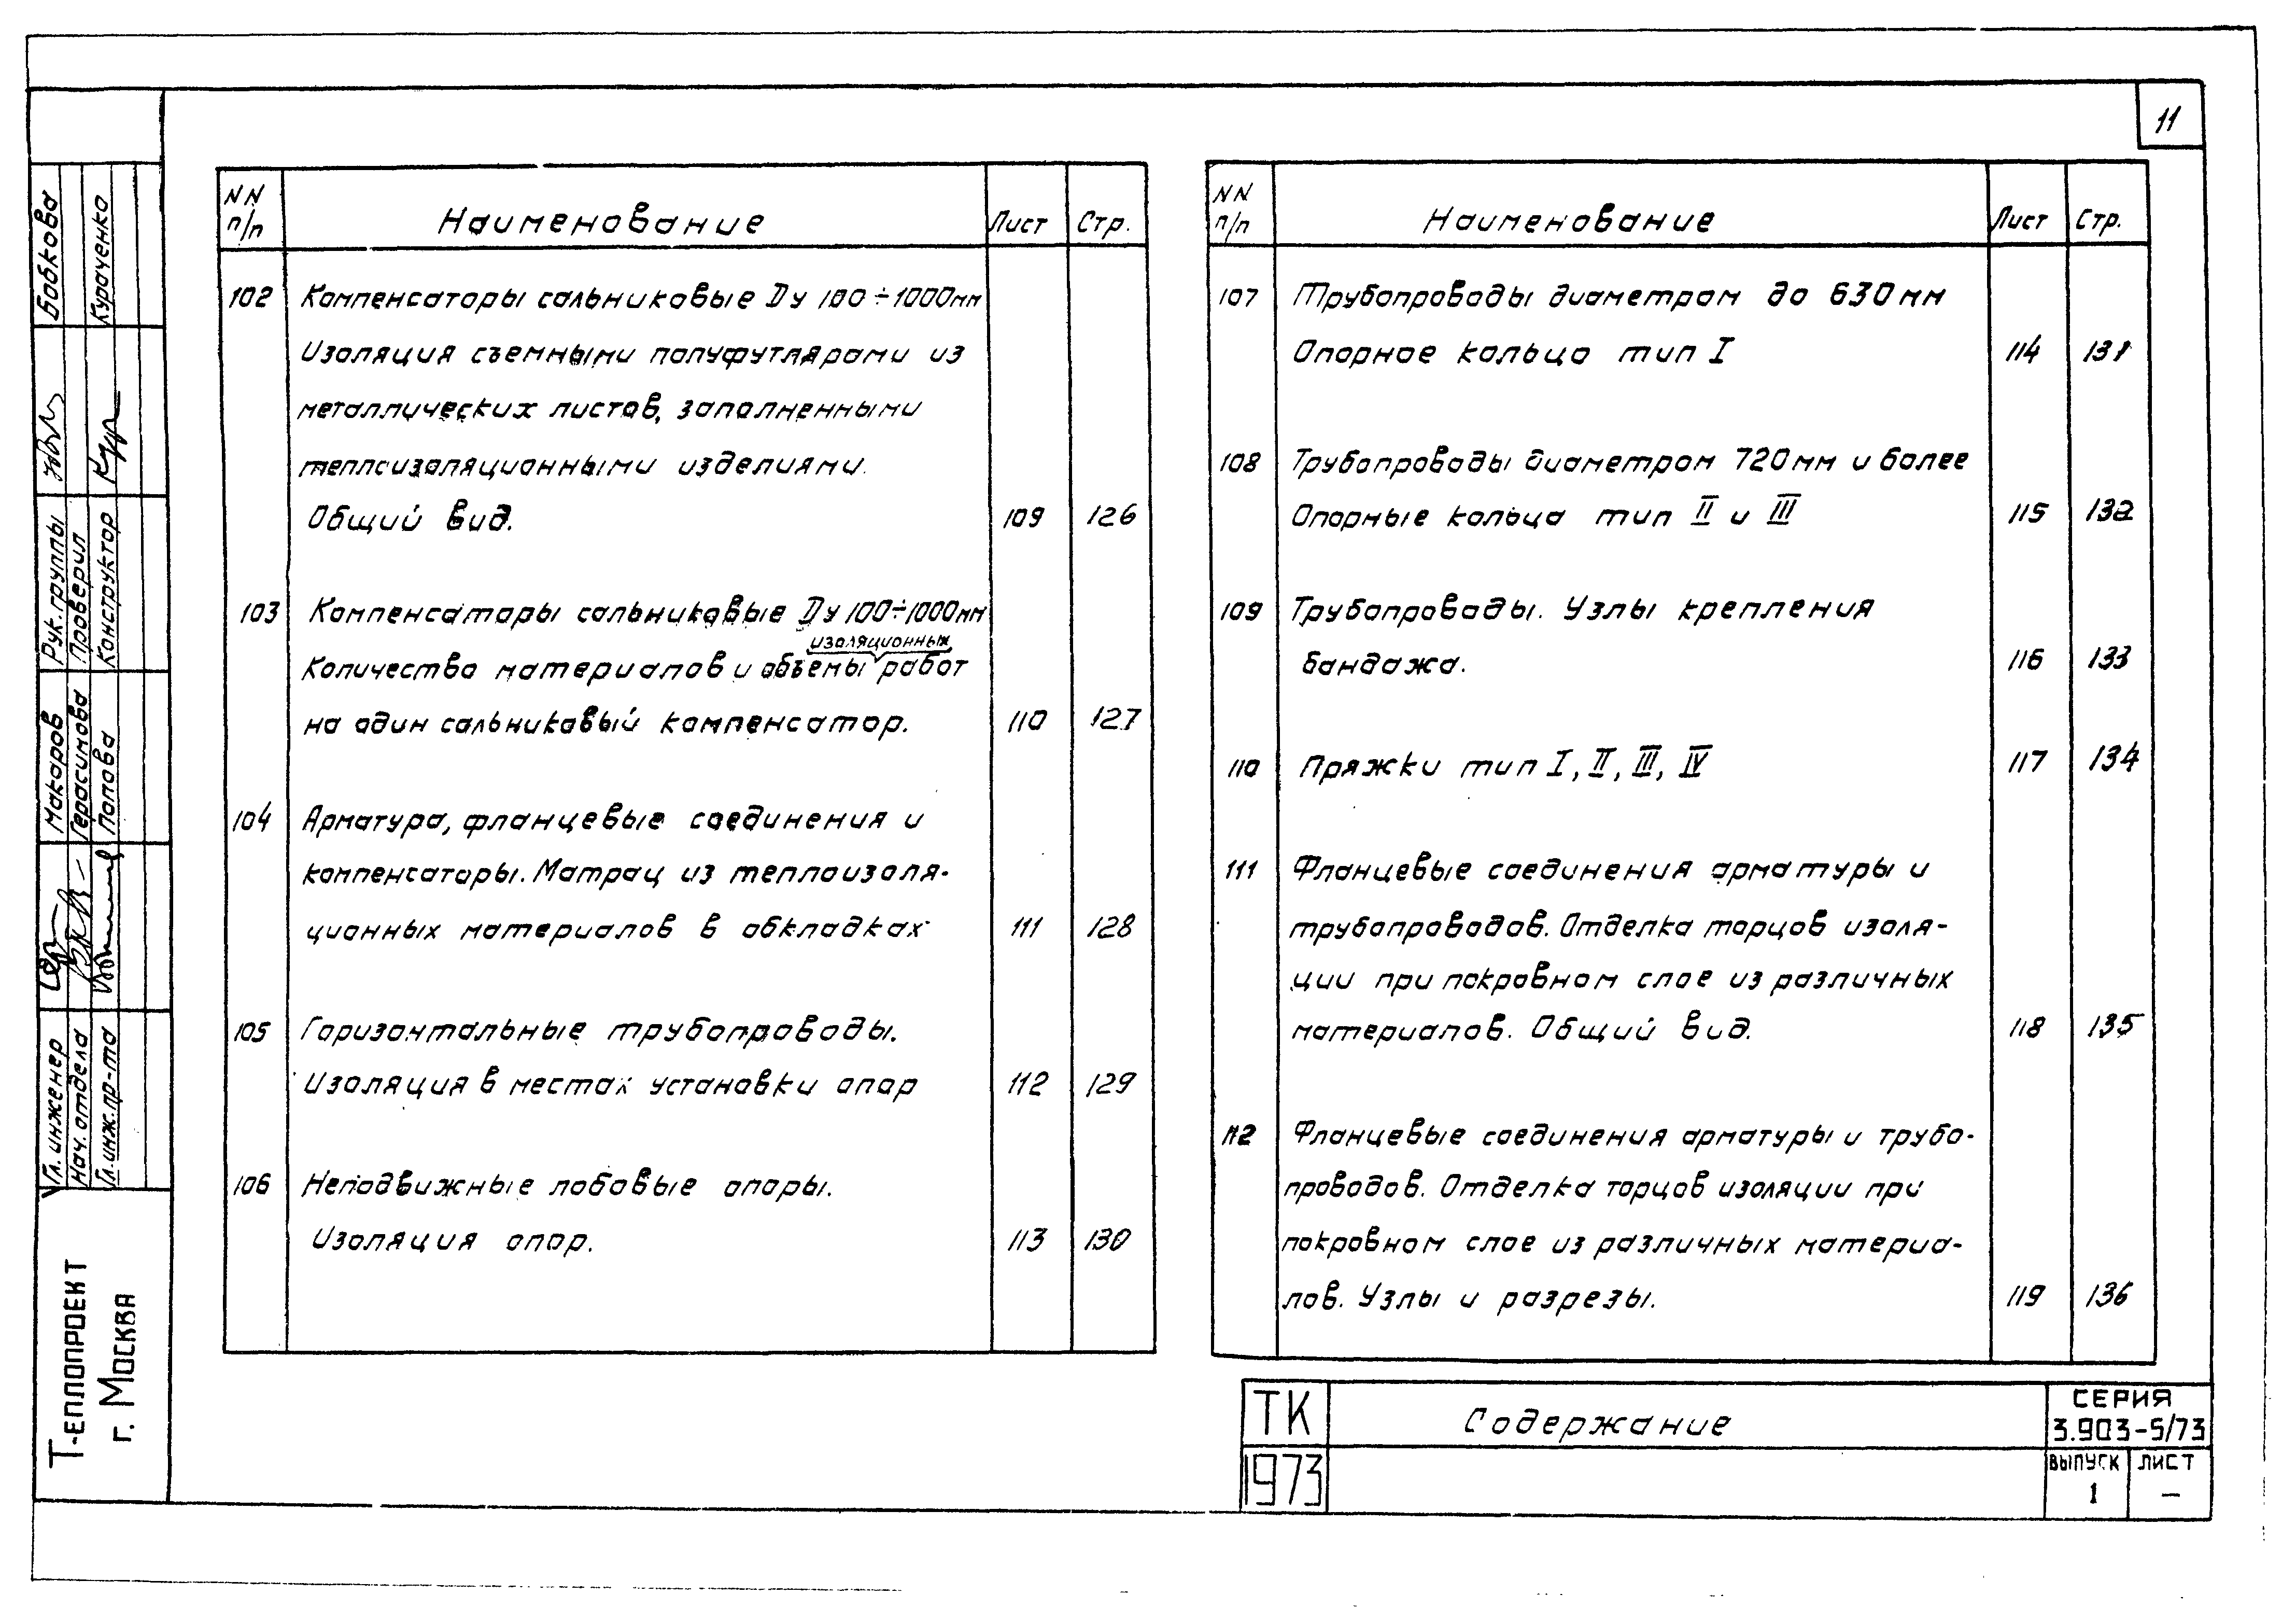 11
NN п/п Наименование Лист Стр.
102 Компенсаторы сальниковые Dу 100÷1000мм
Изоляция съемными полуфутлярами из
металлических листов, заполненными
теплоизоляционными изделиями.
Общий вид. 109 126
103 Компенсаторы сальниковые Dу 100÷1000мм
изоляционных
Количество материалов и объемы работ
на один сальниковый компенсатор. 110 127
104 Арматура, фланцевые соединения и
компенсаторы. Матрац из теплоизоля-
ционных материалов в обкладках 111 128
105 Горизонтальные трубопроводы.
Изоляция в местах установки опор 112 129
106 Неподвижные лобовые опоры.
Изоляция опор. 113 130
NN п/п Наименование Лист Стр.
107 Трубопроводы диаметром до 630мм
Опорное кольцо тип I 114 131
108 Трубопроводы диаметром 720мм и более
Опорные кольца тип II и III 115 132
109 Трубопроводы. Узлы крепления
бандажа. 116 133
110 Пряжки тип I, II, III, IV 117 134
111 Фланцевые соединения арматуры и
трубопроводов. Отделка торцов изоля-
ции при покровном слое из различных
материалов. Общий вид. 118 135
112 Фланцевые соединения арматуры и трубо-
проводов. Отделка торцов изоляции при
покровном слое из различных материа-
лов. Узлы и разрезы. 119 136
ТК
1973
Содержание
СЕРИЯ
3.903-5/73
ВЫПУСК ЛИСТ
1 —
Гл. инженер Макаров Рук. группы Бобкова
Нач. отдела Герасимова Проверил
Гл. инж. пр-та Попова Конструктор Кураченко
Теплопроект
г. Москва